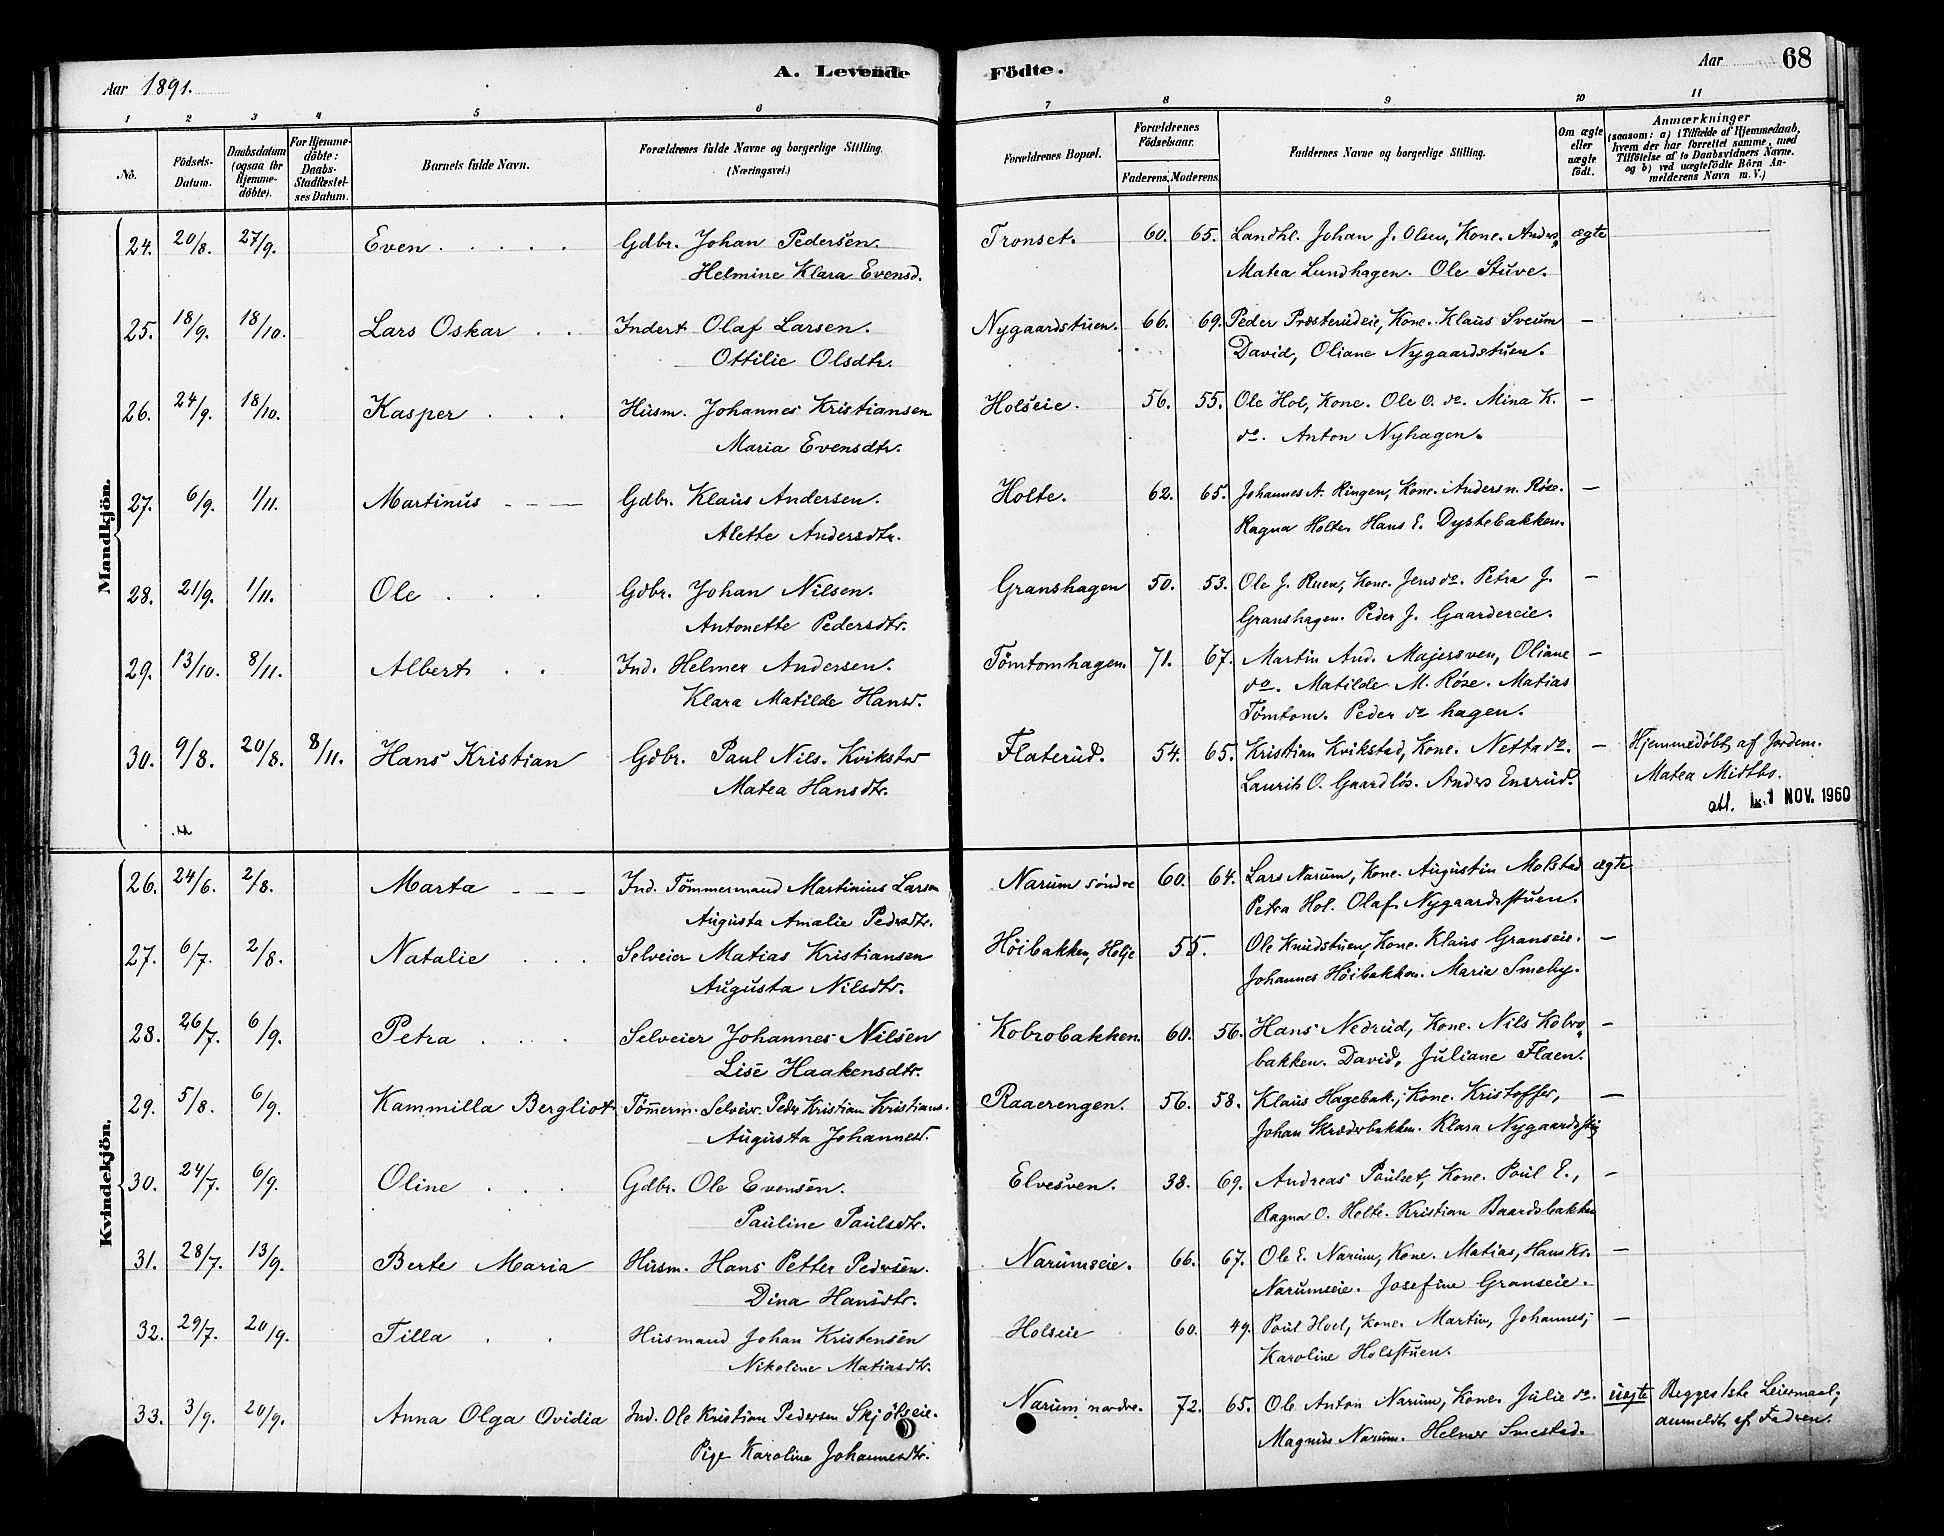 Aar 1891.
A. Levende
Födte.
Aar
68
1 2 3 4 5 6 7 8 9 10 11
No.
Födsels-Datum.
Daabsdatum (ogsaa for Hjemme-döbte).
For Hjemme-döbte: Daabs-Stadfæstel-ses Datum.
Barnets fulde Navn.
Forældrenes fulde Navne og borgerlige Stilling. (Næringsvei.)
Forældrenes Bopæl.
Forældrenes Födselsaar.
Faderens. Moderens.
Faddernes Navne og borgerlige Stilling.
Om ægte eller uægte födt.
Anmærkninger
(saasom: a) i Tilfælde af Hjemmedaab, hvem der har forrettet samme, med Tilföielse af to Daabsvidners Navne. og b) ved uægtefödte Börn An-melderens Navn m. V.)
Mandkjön.
24. 20/8. 27/9. Even Gdbr. Johan Pedersen. Tronset. 60. 65. Landhl. Johan J. Olsen, Kone. Anders, ægte
Helmine Klara Evensd. Matea Lundhagen. Ole Stuve.
25. 18/9. 18/10. Lars Oskar Indert Olaf Larsen. Nygaardstuen. 66. 69. Peder Præsterudeie, Kone. Klaus Sveum –
Ottilie Olsdtr. David, Oliane Nygaardstuen.
26. 24/9. 18/10. Kasper Husm. Johannes Kristiansen Holseie. 56. 55. Ole Hol, Kone. Ole O. do. Mina K. –
Maria Evensdtr. do. Anton Nyhagen.
27. 6/9. 1/11. Martinus Gdbr. Klaus Andersen. Holte. 62. 65. Johannes A. Ringen, Kone. Anders n. Röse. –
Alette Andersdtr. Ragna Holte. Hans E. Dystebakken.
28. 21/9. 1/11. Ole Gdbr. Johan Nilsen. Granshagen 50. 53. Ole J. Ruen, Kone. Jens do. Petra J. –
Antonette Pedersdtr. Granshagen. Peder J. Gaardereie.
29. 13/10. 8/11. Albert Ind. Helmer Andersen. Tömtomhagen. 71. 67. Martin And. Majersven, Oliane –
Klara Matilde Hansd. do. Matilde M. Röse. Matias
Tömtom. Peder do hagen.
30. 9/8. 20/8. 8/11. Hans Kristian Gdbr. Paul Nils. Kvikstad Flaterud. 54. 65. Kristian Kvikstad, Kone. Netta do. – Hjemmedöbt af Jordem.
Matea Hansdtr. Laurits O. Gaardlös. Anders Ensrud. Matea Midtbö.
att. 1 NOV. 1960
Kvindekjön.
26. 24/6. 2/8. Marta Ind. Tömmermand Martinius Larsen Narum söndre 60. 64. Lars Narum, Kone. Augustin Molstad ægte
Augusta Amalie Pedersdtr. Petra Hol. Olaf Nygaardsstuen.
27. 6/7. 2/8. Natalie Selveier Matias Kristiansen Höibakken, Holje 55. Ole Knudstuen, Kone. Klaus Granseie. –
Augusta Nilsdtr. Johannes Höibakken. Maria Smeby.
28. 26/7. 6/9. Petra Selveier Johannes Nilsen Kobrobakken. 60. 56. Hans Nedrud, Kone. Nils Kobro –
Lise Haakensdtr. bakken. David, Juliane Flaen.
29. 5/8. 6/9. Kammilla Bergliot Tömerm. Selveier. Peder Kristian Kristians. Raaerengen. 56. 58. Klaus Hagebak., Kone. Kristoffer, –
Augusta Johannesd. Johan Skræderbakken. Klara Nygaardsstu
30. 24/7. 6/9. Oline Gdbr. Ole Evensen. Elvesven. 38. 69. Andreas Poulset, Kone. Poul E., –
Pauline Paulsdtr. Ragna O. Holte. Kristian Baardsbakken
31. 28/7. 13/9. Berte Maria Husm. Hans Petter Pedersen. Narumseie. 66. 67. Ole E. Narum, Kone. Matias, Hans Kr. –
Dina Hansdtr. Narumseie. Josefine Granseie.
32. 29/7. 20/9. Tilla Husmand Johan Kristensen Holseie 60. 49. Poul Hoel, Kone. Martin, Johannes, –
Nikoline Matiasdtr. Karoline Holsstuen.
33. 3/9. 20/9. Anna Olga Ovidia Ind. Ole Kristian Pedersen Skjölseie. Narum nordre. 72. 65. Ole Anton Narum, Kone. Julie do. uegte Begges 1ste Leiermaal,
Pige Karoline Johannesdtr. Magnus Narum. Helmer Smestad. anmeldt af Fadren.